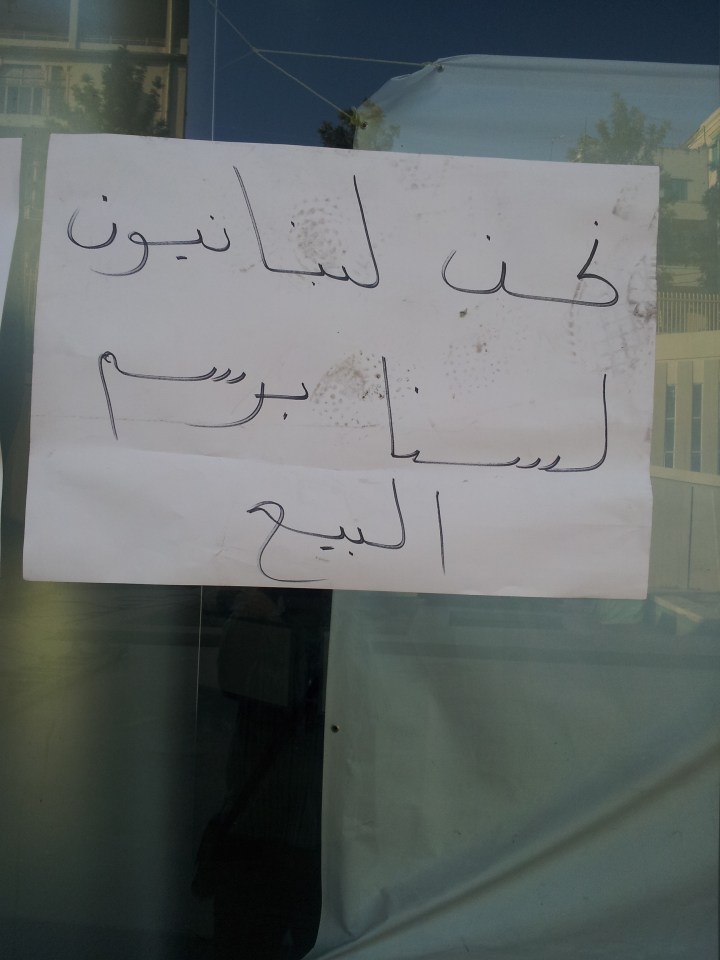 نحن لبنانيون
لسنا برسم
البيع